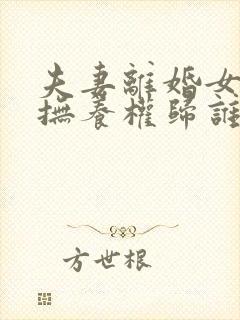 夫妻離婚女
撫養權歸誰
方世根